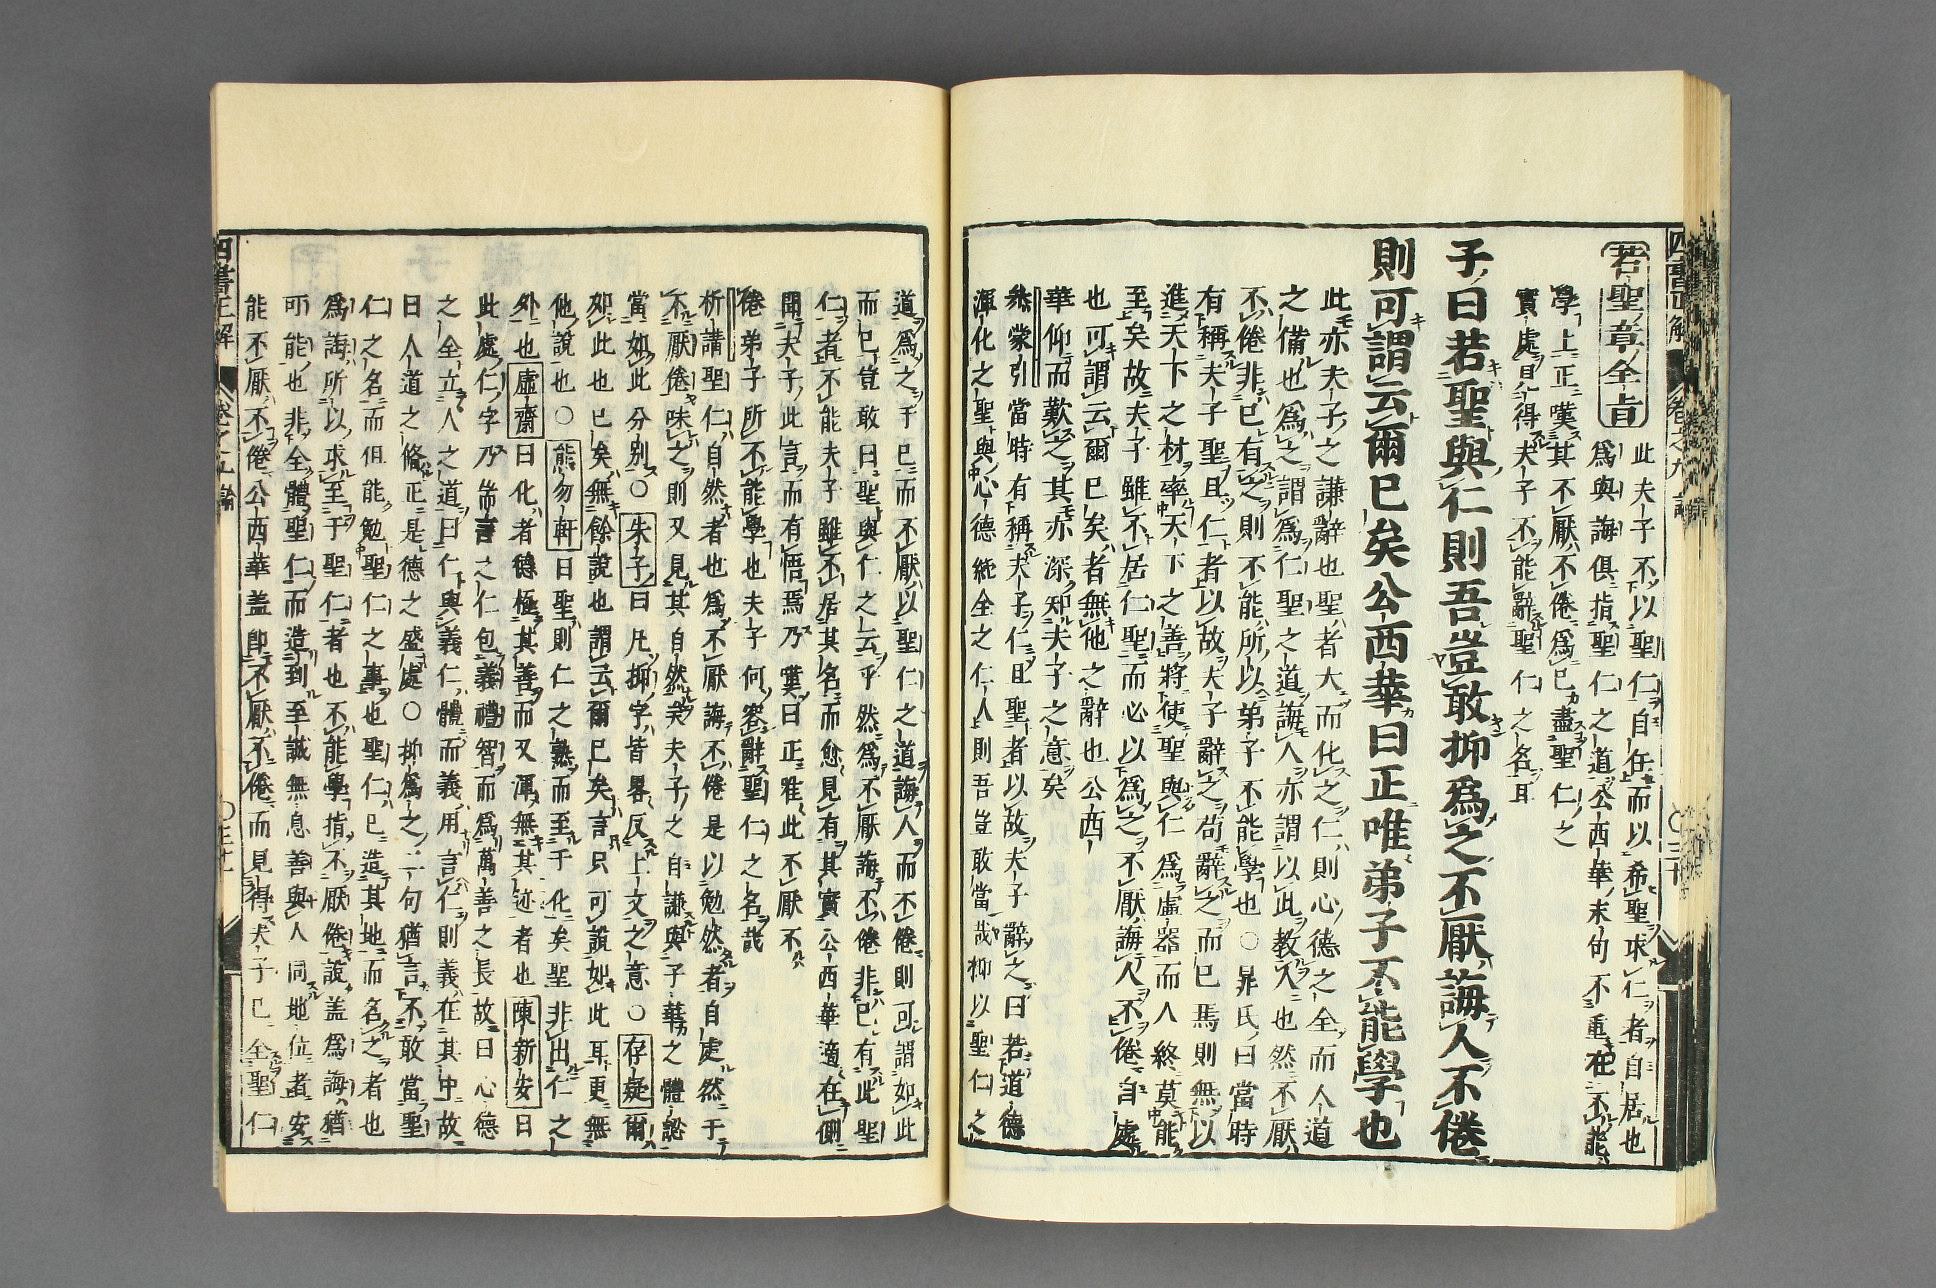 若聖章全旨 此夫子不以聖仁自任而以希聖求仁者自居也
爲與誨俱指聖仁之道公西華末句不重在不能
學上正嘆其不厭不倦爲已盡聖仁之
實處見得夫子不能辭聖仁之名耳
子曰若聖與仁則吾豈敢抑爲之不厭誨人不倦
則可謂云爾已矣公西華曰正唯弟子不能學也
此亦夫子之謙辭也聖者大而化之仁則心德之全而人道
之備也爲之謂爲仁聖之道誨人亦謂以此教人也然不厭
不倦非己有之則不能所以弟子不能學也○晁氏曰當時
有稱夫子聖且仁者以故夫子辭之苟辭之而已焉則無以
進天下之材率天下之善將使聖與仁爲虛器而人終莫能
至矣故夫子雖不居仁聖而必以爲之不厭誨人不倦自處
也可謂云爾已矣者無他之辭也公西
華仰而歎之其亦深知夫子之意矣
參蒙引當時有稱夫子仁且聖者以故夫子辭之曰若道德
渾化之聖與心德純全之仁人則吾豈敢當哉抑以聖仁之
道爲之于己而不厭以聖仁之道誨人而不倦則可謂如此
而已豈敢曰聖與仁之云乎然爲不厭誨不倦非己有此聖
仁者不能夫子雖不居其名而愈見有其實公西華適在側
聞夫子此言而有悟焉乃嘆曰正雅此不厭不
倦弟子所不能學也夫子何容辭聖仁之名哉
析講聖仁自然者也爲不厭誨不倦是以勉然者自處然于
不厭倦味之則又見其自然矣夫子之自謙與子華之體認
當如此分別○朱子曰凡抑字皆畧反上文之意○存疑爾
如此也已矣無餘說也謂云爾已矣言只可說如此耳更無
他說也○熊勿軒曰聖則仁之熟而至于化矣聖非出仁之
外也虛齋曰化者德極其善而又渾無其迹者也陳新安曰
此處仁字乃耑言之仁包義禮智而爲萬善之長故曰心德
之全立人之道曰仁與義仁體而義用言仁則義在其中故
曰人道之備正是德之盛處○抑爲之二句猶言不敢當聖
仁之名而但能勉聖仁之事也聖仁已造其地而名之者也
爲誨所以求至于聖仁者也不能學指不厭倦說盖爲誨猶
可能也非全體聖仁而造到至誠無息善與人同地位者安
能不厭不倦公西華盖卽不厭不倦而見得夫子已全聖仁